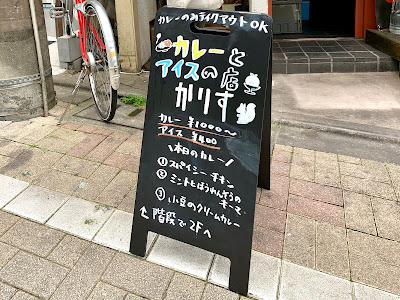 カレーのみテイクアウトOK
カレーと
アイスの店
かりす
カレー ¥1000〜
アイス ¥400
\本日のカレー/
①スパイシーチキン
②ミントとほうれんそうの
キーマ
③小豆のクリームカレー
↑階段で2Fへ